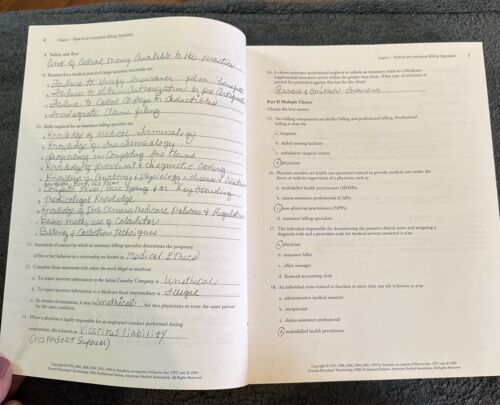 Chapter 1 Role of an Insurance Billing Specialist
7. Define cash flow.
Amt. of actual money available to the practice
8. Reasons for a medical practice's large accounts receivable are:
a. Failure to verify insurance plan benefits
b. Failure to obtain authorization or pre cert
c. Failure to collect copays or deductibles
d. Inadequate claims filing
10. Skills required for an insurance billing specialist are:
a. Knowledge of medical terminology
b. Knowledge of ins. terminology
c. proficiency in completing ins. claims
d. Knowledge of procedural & diagnostic coding
e. Knowledge of anatomy & physiology
medicolegal knowledge
Knowledge of
Basic math, use of calculator
Billing & collection techniques
11. Standards of conduct by which an insurance billing specialist determines the propriety
of his or her behavior in a relationship are known as Medical Ethics
12. Complete these statements with either the word illegal or unethical.
a. To report incorrect information to the Aetna Casualty Company is unethical
b. To report incorrect information to a Medicare fiscal intermediary is illegal
c. In certain circumstances, it may be unethical for two physicians to treat the same patient
for the same condition.
13. When a physician is legally responsible for an employee's conduct performed during
employment, this is known as Vicarious liability
(respondeat superior)
Copyright © 2010, 2008, 2006, 2004, 2002, 1999 by Saunders, an imprint of Elsevier Inc. CPT only © 2009
Current Procedural Terminology, 2010, Professional Edition, American Medical Association. All Rights Reserved.
Chapter 1 Role of an Insurance Billing Specialist
14. A claims assistance professional neglects to submit an insurance claim to a Medicare
supplemental insurance carrier within the proper time limit. What type of insurance is
needed for protection against this loss for the client?
Errors & omissions insurance
Part II Multiple Choice
Choose the best answer.
15. Two billing components are facility billing and professional billing. Professional
billing is done for
a. hospitals
b. skilled nursing facilities
c. ambulatory surgical centers
d. physicians
16. Physician extenders are health care personnel trained to provide medical care under the
direct or indirect supervision of a physician, such as
a. multiskilled health practitioners (MSHPs)
b. claims assistance professionals (CAPs)
c. non-physician practitioners (NPPs)
d. insurance billing specialists
17. The individual responsible for documenting the patient's clinical notes and assigning a
diagnosis code and a procedure code for medical services rendered is a/an
a. physician
b. insurance biller
c. office manager
d. financial accounting clerk
18. An individual cross-trained to function in more than one job is known as a/an
a. administrative medical assistant
b. receptionist
c. claims assistance professional
d. multiskilled health practitioner
Copyright © 2010, 2008, 2006, 2004, 2002, 1999 by Saunders, an imprint of Elsevier Inc. CPT only © 2009
Current Procedural Terminology, 2010, Professional Edition, American Medical Association. All Rights Reserved.